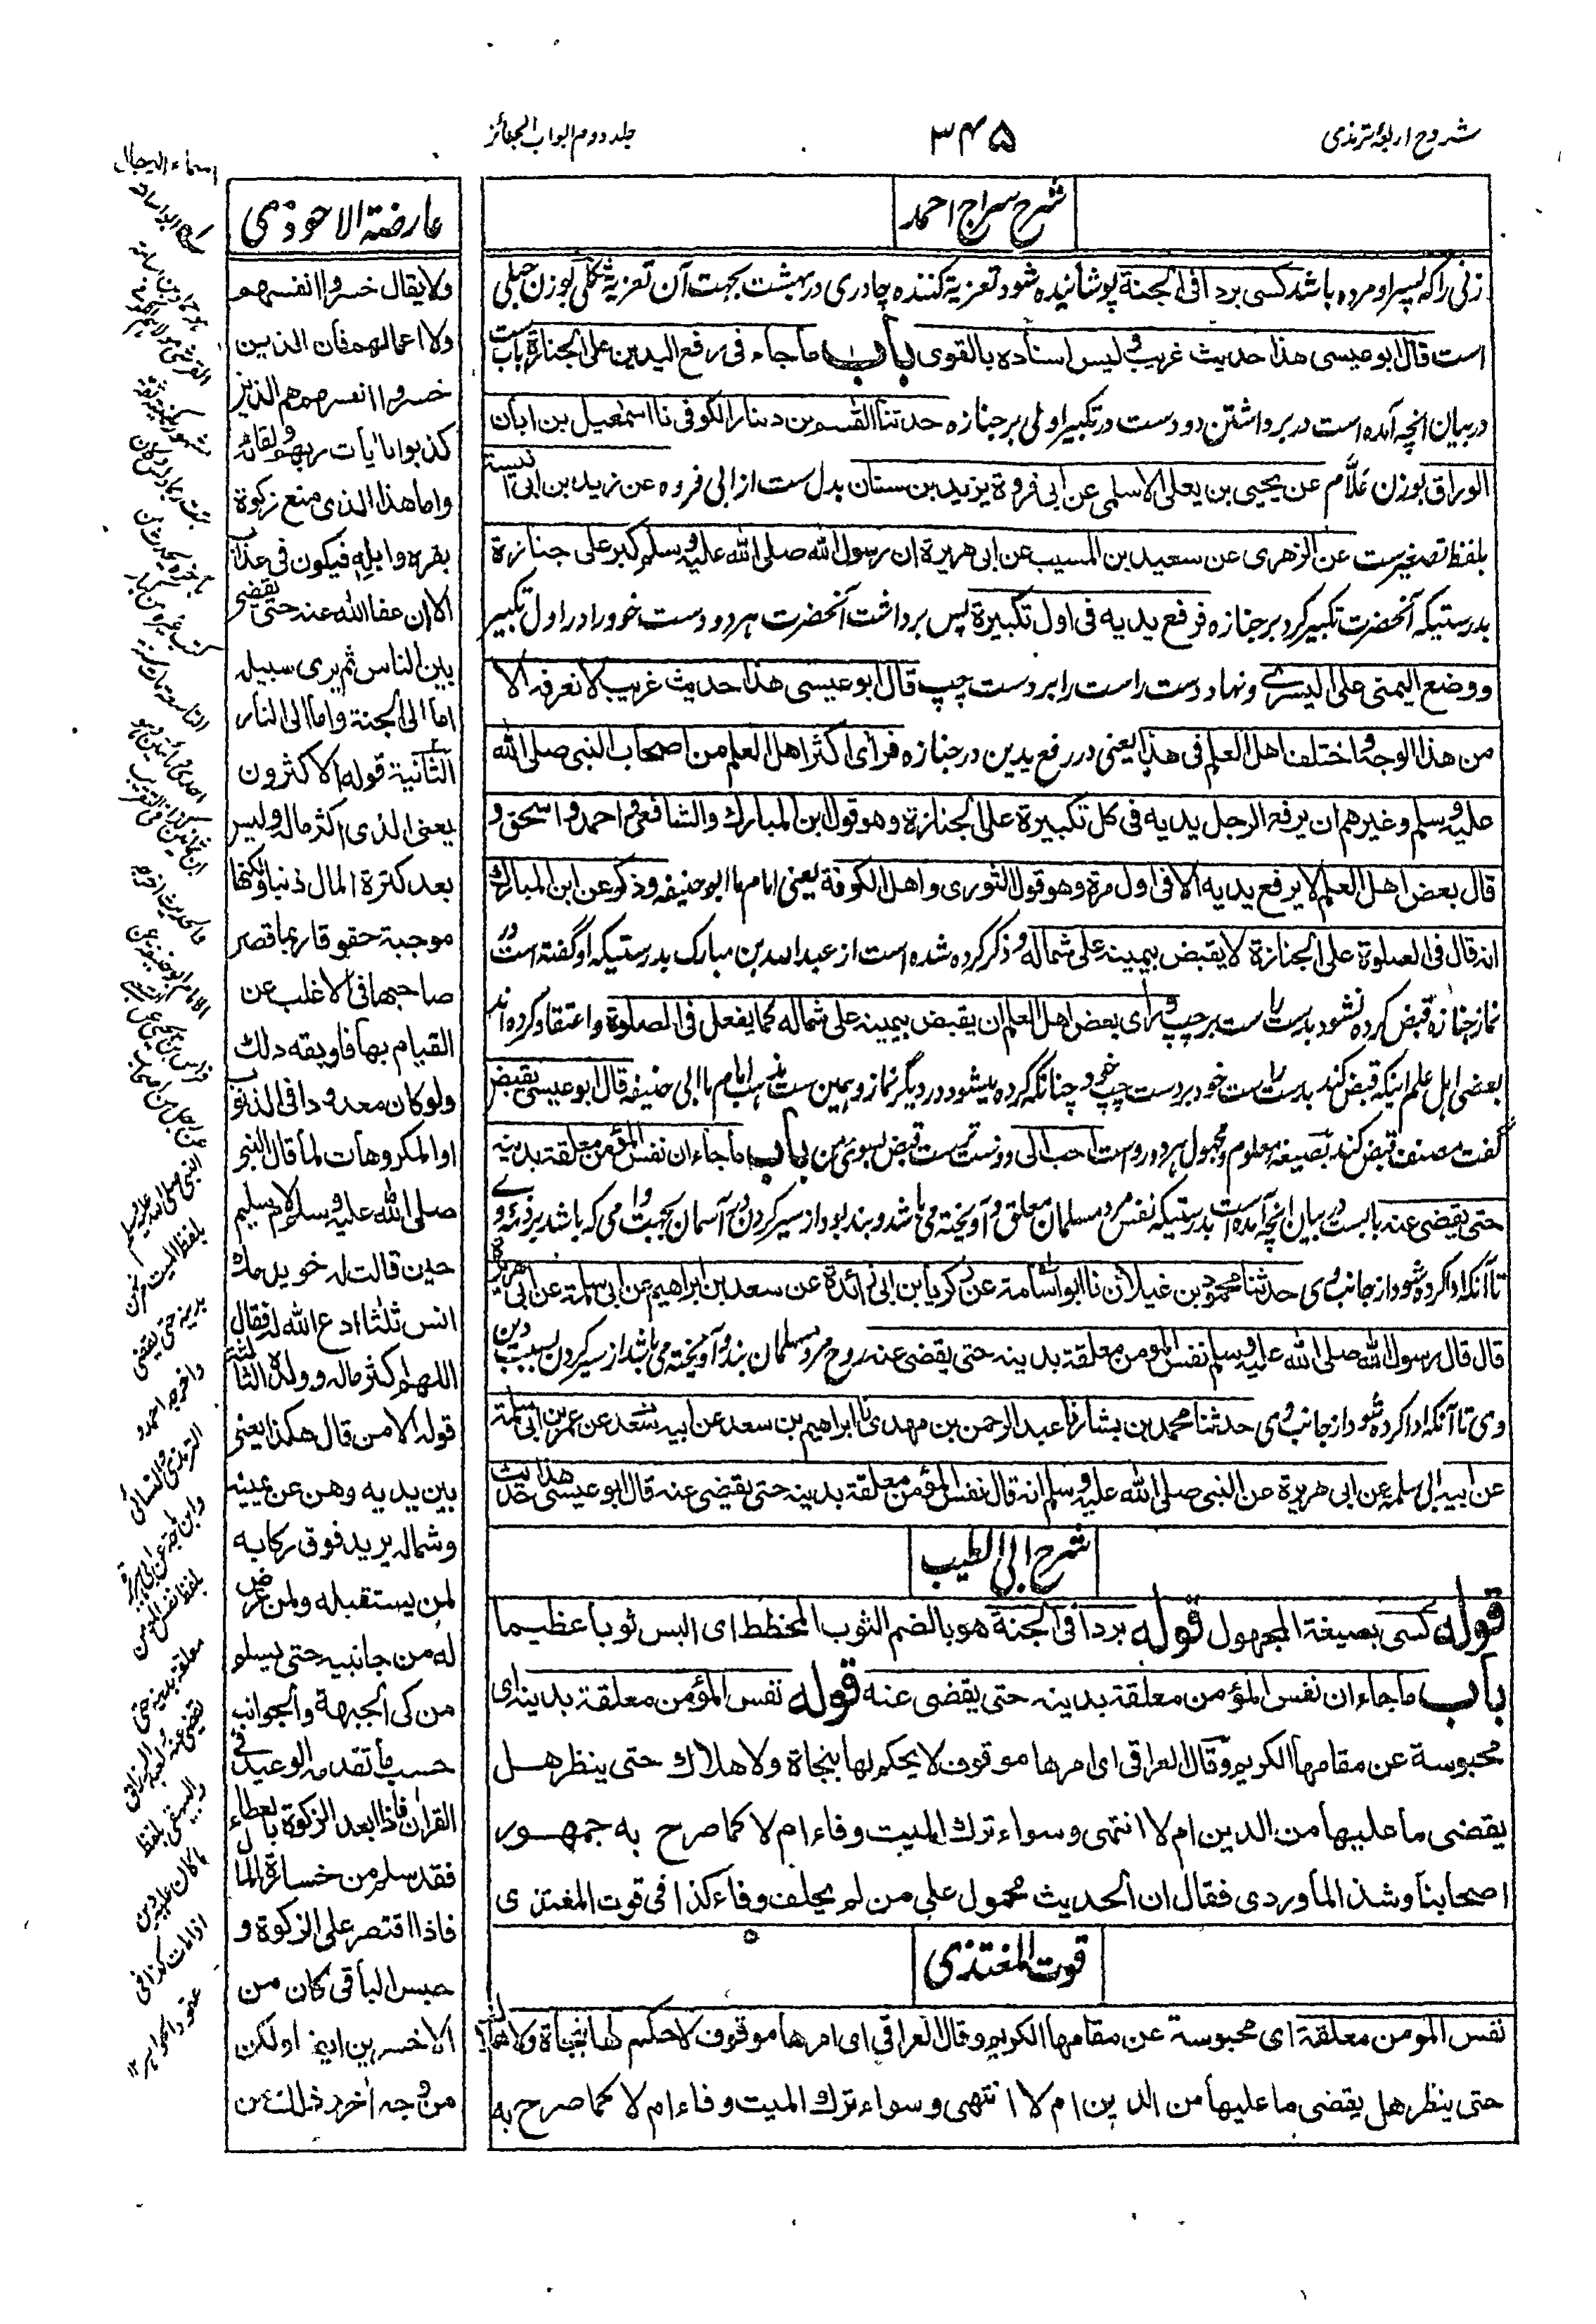 شروح اربعہ ترمذی
۳۴۵
جلد دوم ابواب الجنائز
شرح سراج احمد
زنی را کہ پسر او مردہ باشد کسی بردا فی الجنة پوشانیدہ شود تعزیۃ کنندہ چادری در بہشت بجہت آن تعزیہ ثکلی بوزن حبلی
است قال ابو عیسی هذا حدیث غریب و لیس اسناده بالقوی باب ما جاء فی رفع الیدین علی الجنازة باب ست
در بیان انچہ آمدہ است در برداشتن دو دست در تکبیر اولی بر جنازہ حدثنا القسم بن دینار الکوفی نا اسمعیل بن ابان
الوراق بوزن علّام عن یحیی بن یعلی الاسلمی عن ابی فروة یزید بن سنان بدل ست از ابی فروہ عن زید بن ابی انیسة
بلفظ تصغیر ست عن الزهری عن سعید بن المسیب عن ابی هریرة ان رسول الله صلی الله علیه وسلم کبر علی جنازة
بدرستیکہ آنحضرت تکبیر کرد بر جنازہ فرفع یدیه فی اول تکبیرة پس برداشت آنحضرت ہر دو دست خود را در اول تکبیر
ووضع الیمنی علی الیسرے و نہاد دست راست را بر دست چپ قال ابو عیسی هذا حدیث غریب لا نعرفه الا
من هذا الوجه واختلف اهل العلم فی هذا یعنی در رفع یدین در جنازہ فرأی اکثر اهل العلم من اصحاب النبی صلی الله
علیه وسلم وغیرهم ان یرفع الرجل یدیه فی کل تکبیرة علی الجنازة وهو قول ابن المبارک والشافعی واحمد واسحق و
قال بعض اهل العلم لا یرفع یدیه الا فی اول مرة وهو قول الثوری واهل الکوفة یعنی امام ما ابو حنیفہ وذکر عن ابن المبارک
انه قال فی الصلوة علی الجنازة لا یقبض بیمینه علی شماله و ذکر کردہ شدہ است از عبد اللہ بن مبارک بدرستیکہ او گفتہ است در
نماز جنازہ قبض کردہ نشود بدست راست بر چپ ورای بعض اهل العلم ان یقبض بیمینه علی شماله کما یفعل فی الصلوة و اعتقاد کردہ اند
بعضی اہل علم اینکہ قبض کند بدست راست خود بر دست چپ خود چنانکہ کردہ میشود در دیگر نماز و ہمین ست مذہب امام ما ابی حنیفہ قال ابو عیسی یقبض
گفت مصنف قبض کند بصیغہ معلوم و مجہول ہر دو رواست احب الی و دوست ترست قبض بسوی من باب ما جاء ان نفس المؤمن معلقة بدینه
حتی یقضی عنه بابست در بیان انچہ آمدہ است بدرستیکہ نفس مرد مسلمان معلق و آویختہ می باشد و بند بود از سیر کردن بہ آسمان بجہت وامی کہ باشد بر ذمہ وے
تا آنکہ ادا کردہ شود از جانب وی حدثنا محمود بن غیلان نا ابو اسامة عن زکریا بن ابی زائدة عن سعد بن ابراهیم عن ابی سلمة عن ابی هریرة
قال قال رسول الله صلی الله علیه وسلم نفس المومن معلقة بدینه حتی یقضی عنه روح مرد مسلمان بند و آویختہ می باشد از سیر کردن بسبب دین
وی تا آنکہ ادا کردہ شود از جانب وی حدثنا محمد بن بشار نا عبد الرحمن بن مهدی نا ابراهیم بن سعد عن ابیه سعد عن عمر بن ابی سلمة
عن ابیه ابی سلمہ عن ابی هریرة عن النبی صلی الله علیه وسلم انه قال نفس المؤمن معلقة بدینه حتی یقضی عنه قال ابو عیسی هذا حدیث
شرح ابی الطیب
قوله کسی بصیغة المجهول قوله بردا فی الجنة هو بالضم الثوب المخطط ای البس ثوبا عظیما
باب ما جاء ان نفس المؤمن معلقة بدینه حتی یقضی عنه قوله نفس المؤمن معلقة بدینه ای
محبوسة عن مقامها الکریم وقال العراقی ای امرها موقوف لا یحکم لها بنجاة ولا هلاک حتی ینظر هل
یقضی ما علیها من الدین ام لا انتهی وسواء ترک المیت وفاء ام لا کما صرح به جمهور
اصحابنا وشذ الماوردی فقال ان الحدیث محمول علی من لم یخلف وفاء کذا فی قوت المغتذی
قوت المغتذی
نفس المومن معلقة ای محبوسة عن مقامها الکریم وقال العراقی ای امرها موقوف لا حکم لها بنجاة ولا
حتی ینظر هل یقضی ما علیها من الدین ام لا انتهی وسواء ترک المیت وفاء ام لا کما صرح به
عارضة الاحوذی
ولا یقال خسروا انفسهم
ولا اعمالهم فان الذین
خسروا انفسهم هم الذین
کذبوا بایات ربهم ولقائه
واما هذا الذی منع زکوة
بقره وابله فیکون فی عذاب
الا ان عفا الله عنه حتی یقضی
بین الناس ثم یری سبیله
اما الی الجنة واما الی النار
الثانیة قوله الاکثرون
یعنی الذی اکثر ماله ولیس
بعد کثرة المال ذنبا ولکنها
موجبة حقوقا ربما قصر
صاحبها فی الاغلب عن
القیام بها فاوبقه ذلک
ولو کان معدودا فی الذنوب
او المکروهات لما قال النبی
صلی الله علیه وسلم لام سلیم
حین قالت له خویدمک
انس ثلثا ادع الله له فقال
اللهم کثر ماله وولده الثالثة
قوله الا من قال هکذا یعنی
بین یدیه وهن عن یمینه
وشماله یرید فوق رکابه
لمن یستقبله ولمن عرض
له من جانبیه حتی یسلم
من کی الجبهة والجوانب
حسب ما تقدم الوعید فی
القران فاذا بعد الزکوة باعطاء
فقد سلم من خسارة المال
فاذا اقتصر علی الزکوة و
حبس الباقی کان من
الاخسرین ایضا ولکن
من وجه اخر
اسماء الرجال
النبی صلی الله علیه وسلم
بلفظ المیت مرهون
بدینه حتی یقضی
واخرجه احمد و
الترمذی والنسائی
وابن ماجة عن ابی هریرة
بلفظ نفس المومن
معلقة بدینه حتی
یقضی عنه وعبد الرزاق
والبیهقی بلفظ
ما کان علیه دین
اذا مات کذا فی
عقود الجواهر ۱۲